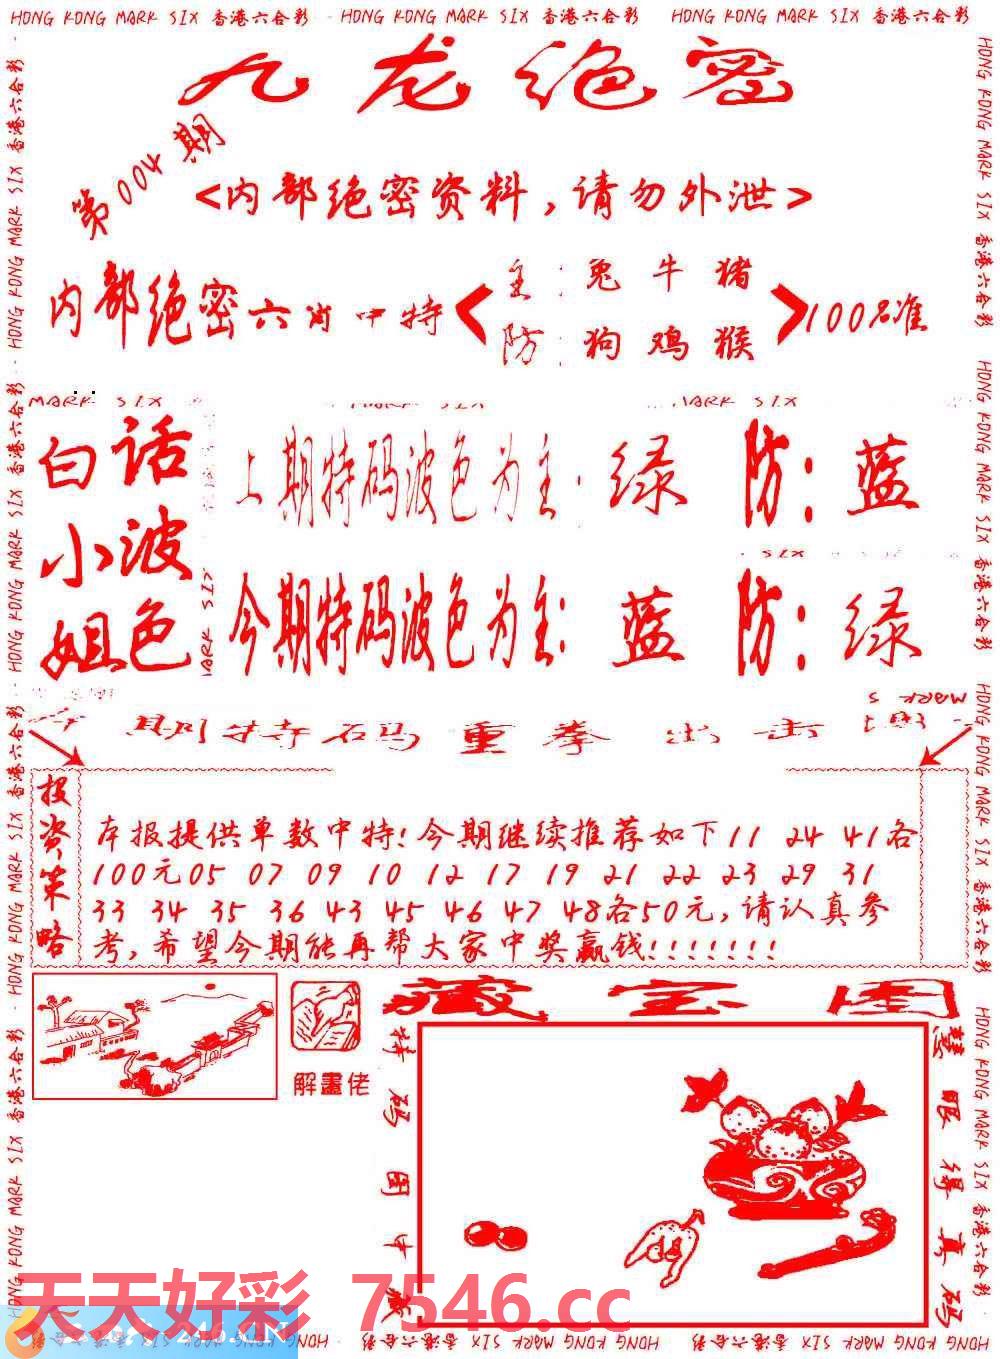 HONG KONG MARK SIX 香港六合彩 HONG KONG MARK SIX 香港六合彩 HONG KONG MARK SIX 香港六合彩
九龙绝密
第004期
<内部绝密资料,请勿外泄>
内部绝密六肖中特
主:兔牛猪
防:狗鸡猴
100%准
MARK SIX
白话小波姐色
上期特码波色为主:绿 防:蓝
今期特码波色为主:蓝 防:绿
期特码重拳出击
投资策略
本报提供单数中特!今期继续推荐如下11 24 41各
100元05 07 09 10 12 17 19 21 22 23 29 31
33 34 35 36 43 45 46 47 48各50元,请认真参
考,希望今期能再帮大家中奖赢钱!!!!!!!
解畫佬
藏宝图
特码图中藏
慧眼得真码
天天好彩 7546.cc
HONG KONG MARK SIX 香港六合彩